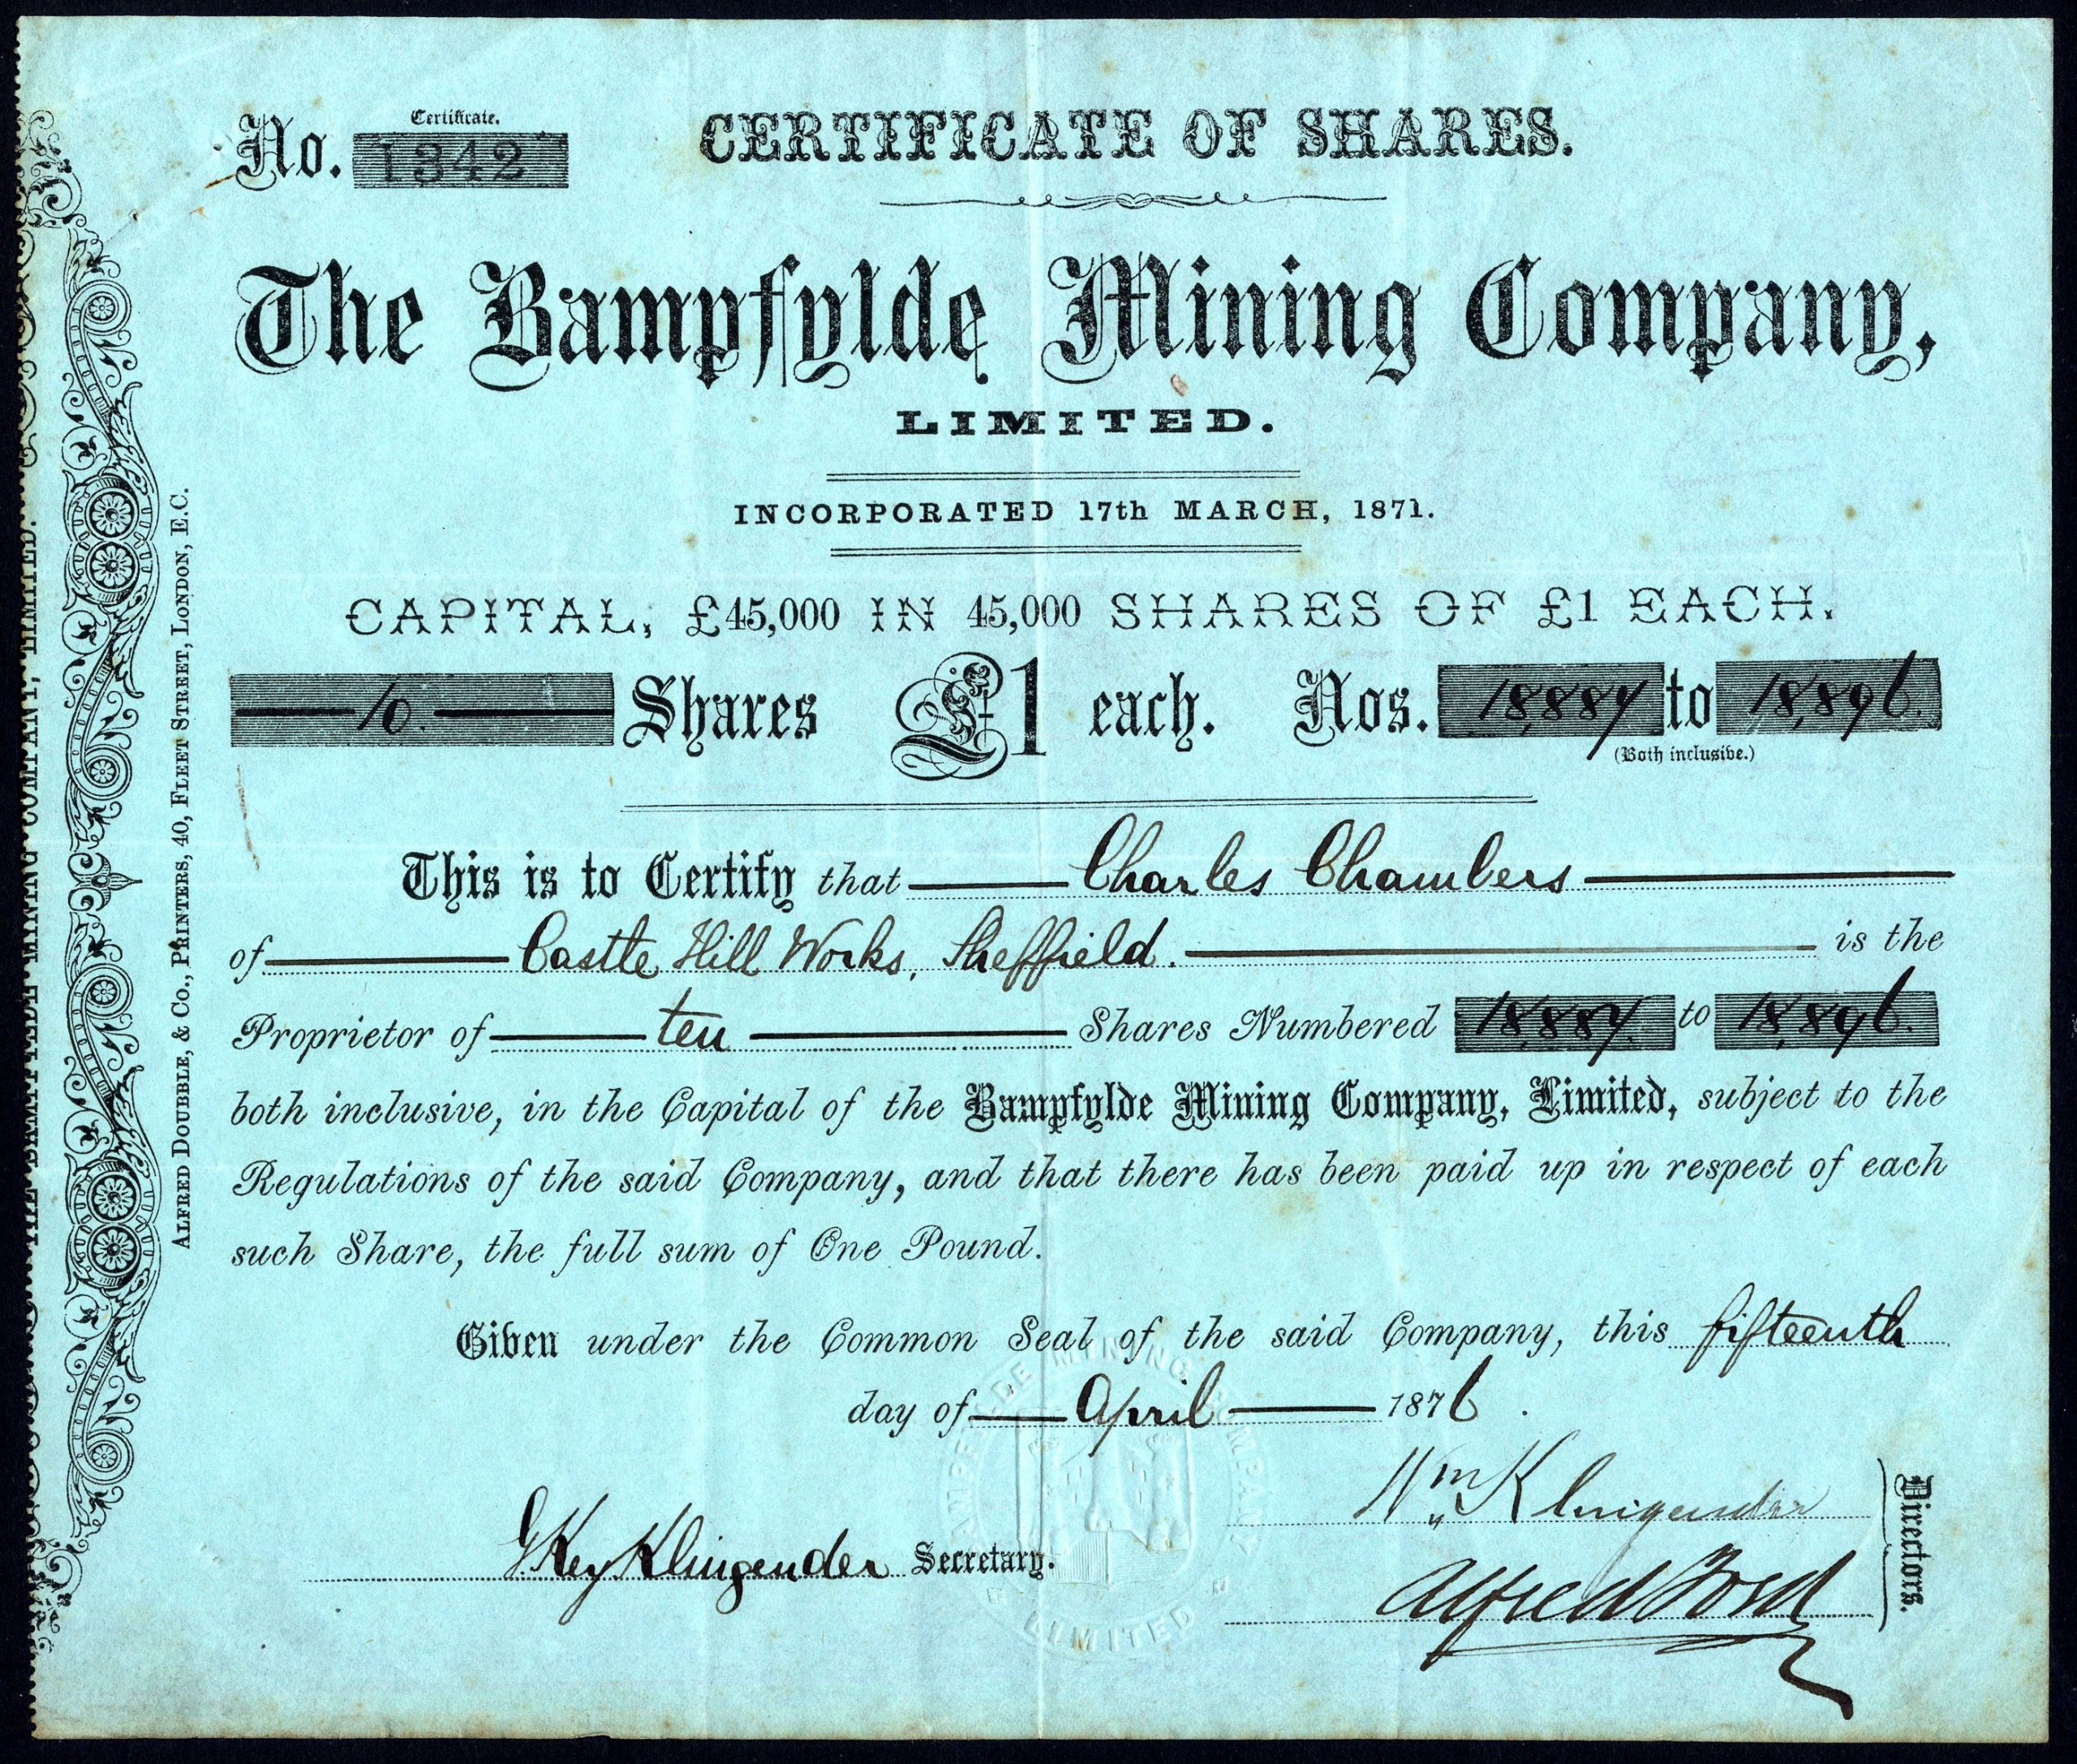 Certificate.
No. 1342
CERTIFICATE OF SHARES.
The Bampfylde Mining Company,
LIMITED.
INCORPORATED 17th MARCH, 1871.
CAPITAL, £45,000 IN 45,000 SHARES OF £1 EACH.
10 Shares £1 each. Nos. 18,887 to 18,896
(Both inclusive.)
This is to Certify that Charles Chambers
of Castle Hill Works, Sheffield. is the
Proprietor of ten Shares Numbered 18,887 to 18,896.
both inclusive, in the Capital of the Bampfylde Mining Company, Limited, subject to the
Regulations of the said Company, and that there has been paid up in respect of each
such Share, the full sum of One Pound.
Given under the Common Seal of the said Company, this fifteenth
day of April 1876.
Wm Klingender
G Key Klingender Secretary.
Alfred
Directors.
ALFRED DOUBBLE, & Co., PRINTERS, 40, FLEET STREET, LONDON, E.C.
THE BAMPFYLDE MINING COMPANY, LIMITED.
BAMPFYLDE MINING COMPANY
LIMITED